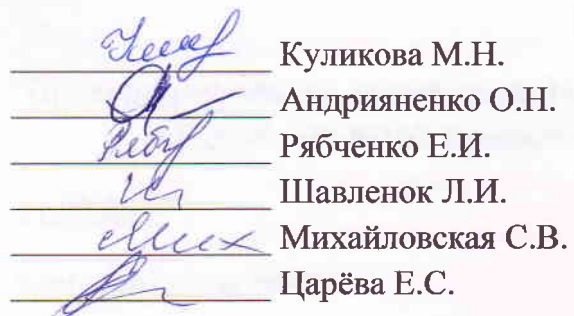 Куликова М.Н.
Андрияненко О.Н.
Рябченко Е.И.
Шавленок Л.И.
Мих Михайловская С.В.
Царёва Е.С.